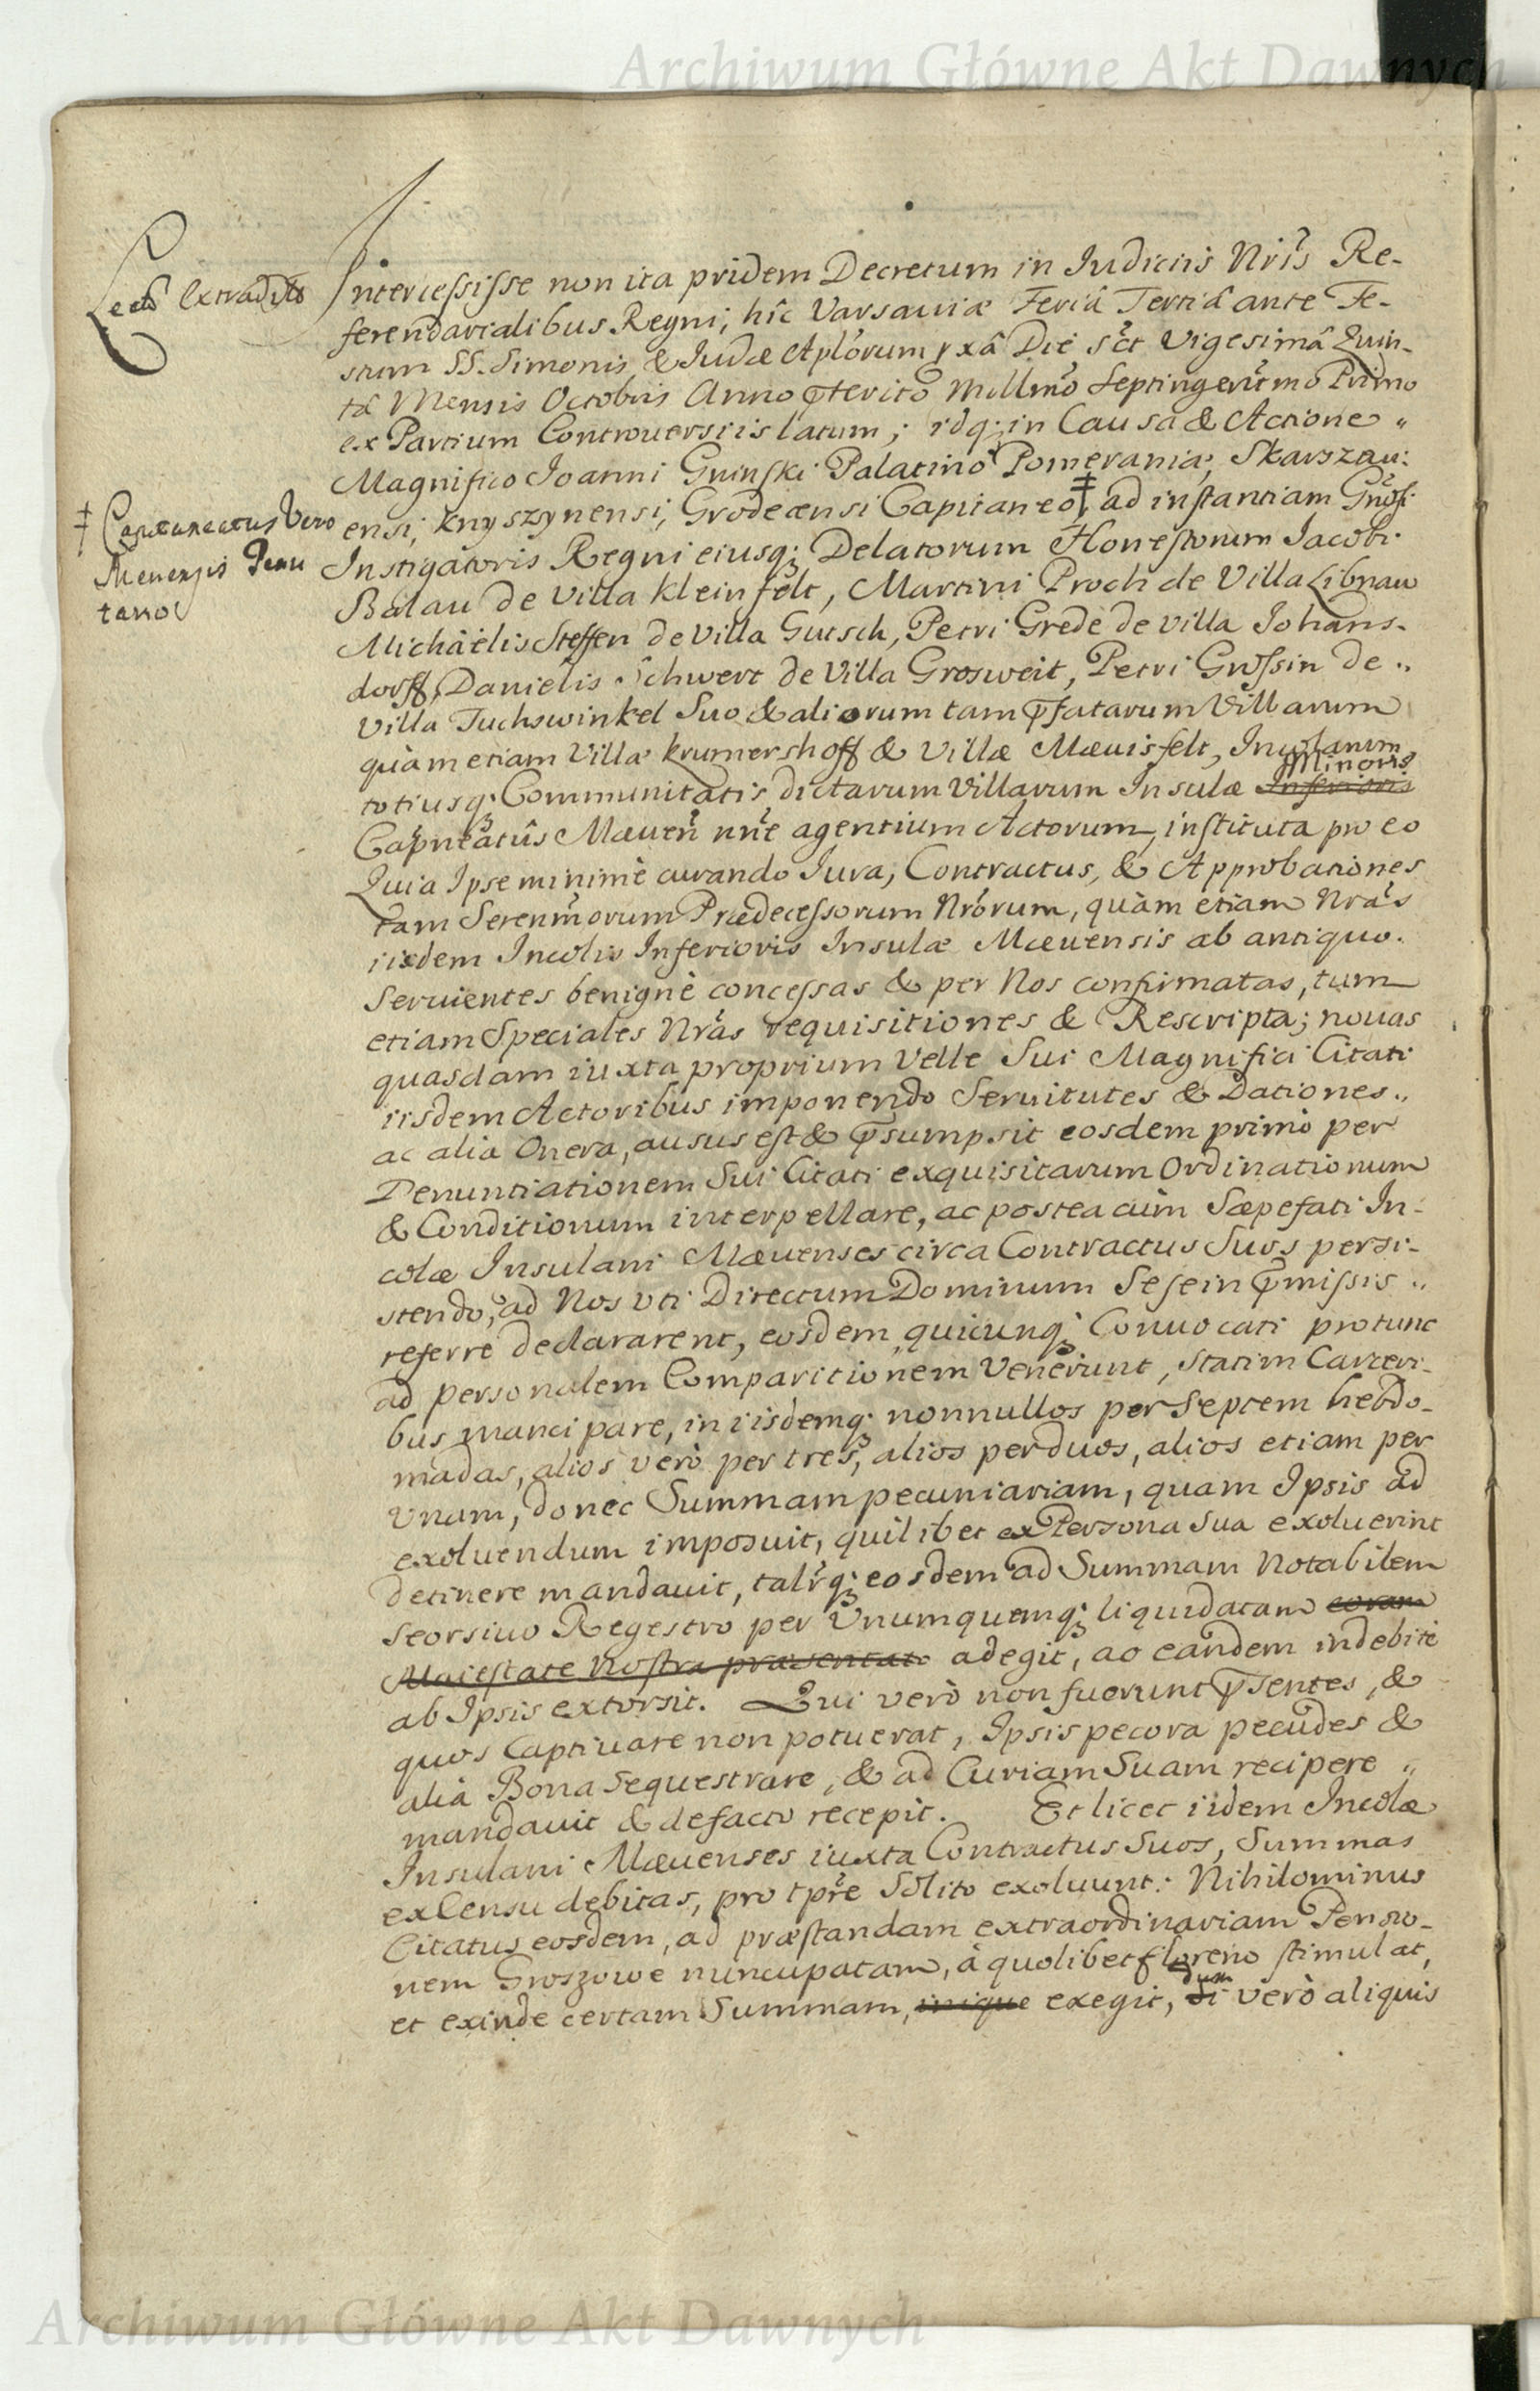 Archiwum Główne Akt Dawnych
Intercessisse non ita pridem Decretum in Judiciis Nris Re-
Lectū extraditō
ferendarialibus Regni, hîc Varsaviæ Feriâ Tertiâ ante Fe-
stum SS. Simonis & Judæ Aplorum Die sct Vigesimâ Quin-
tâ Mensis Octobris Anno p̄terito Millmo Septingentmo Primo
ex Partium Controversiis latum; idq; in Causa & Actione „
Magnifico Joanni Gninski Palatino Pomeraniæ, Skarszau:
ensi, Knyszynensi, Grodecensi Capitaneo ‡, ad instantiam Gnosi
‡ Capitaneatus Vero
Mevensis Tenu
tario
Instigatoris Regni eiusq; Delatorum Honestorum Jacobi
Balau de Villa Kleinfelt, Martini Proch de Villa Libnau
Michaëlis Steffen de Villa Gutsch, Petri Grede de villa Johans-
dorff, Danielis Schwert de Villa Grosweit, Petri Grossin de „
Villa Tuchswinkel Suo & aliorum tam p̄fatarum Villarum
quàm etiam Villæ Krumershoff & Villæ Mævisfelt, Incolarum
totiusq; Communitatis dictarum Villarum Insulæ Inferioris Minoris
Capnratûs Mæven nne agentium Actorum, instituta pro eo
Quia Ipse minimè curando Jura, Contractus, & Approbationes
tam Serenmorum Prædecessorum Nrorum, quàm etiam Nrâs
iisdem Incolis Inferioris Insulæ Mævensis ab antiquo
Servientes benignè concessas & per Nos confirmatas, tum
etiam Speciales Nras requisitiones & Rescripta; novas
quasdam iuxta proprium Velle Sui Magnifici Citati
iisdem Actoribus imponendo Servitutes & Dationes „
ac alia Onera, ausus est & p̄sumpsit eosdem primò per
Denuntiationem Sui Citati exquisitarum Ordinationum
& Conditionum interpellare, ac postea cùm Sæpefati In-
colæ Insulani Mævenses circa Contractus Suos persi-
stendo, ad Nos vti Directum Dominum Sese in p̄missis „
referre declararent, eosdem quicunq; Convocati protunc
ad personalem Comparitionem Venerunt, statim Carceri-
bus mancipare, in iisdemq; nonnullos per Septem hebdo-
madas, alios verò per tres, alios per duos, alios etiam per
Vnam, donec Summam pecuniariam, quam Ipsis ad
exolvendum imposuit, quilibet ex Persona Sua exolverint
detinere mandavit, talrq; eosdem ad Summam Notabilem
Seorsivo Regestro per Vnumquemq; liquidatam coram
Maiestate Nostra præsentato adegit, ac eandem indebitè
ab Ipsis extorsit. Qui verò non fuerunt p̄sentes, &
quos Captivare non potuerat, Ipsis pecora pecudes &
alia Bona Sequestrare, & ad Curiam Suam recipere „
mandavit & defacto recepit. Et licet iidem Incolæ
Insulani Mævenses iuxta Contractus Suos, Summas
ex Censu debitas, pro tpre Solito exolvunt: Nihilominus
Citatus eosdem, ad præstandam extraordinariam Pensio-
nem Groszowe nuncupatam, à quolibet floreno stimulat,
et exinde certam Summam, inique exegit, si dum verò aliquis
Archiwum Główne Akt Dawnych